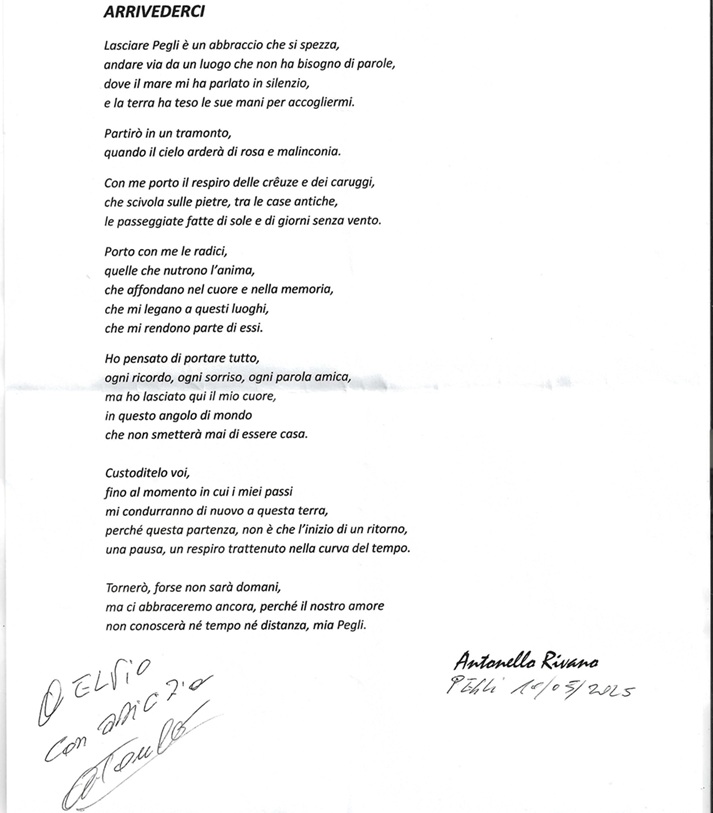 ARRIVEDERCI
Lasciare Pegli è un abbraccio che si spezza,
andare via da un luogo che non ha bisogno di parole,
dove il mare mi ha parlato in silenzio,
e la terra ha teso le sue mani per accogliermi.
Partirò in un tramonto,
quando il cielo arderà di rosa e malinconia.
Con me porto il respiro delle crêuze e dei caruggi,
che scivola sulle pietre, tra le case antiche,
le passeggiate fatte di sole e di giorni senza vento.
Porto con me le radici,
quelle che nutrono l'anima,
che affondano nel cuore e nella memoria,
che mi legano a questi luoghi,
che mi rendono parte di essi.
Ho pensato di portare tutto,
ogni ricordo, ogni sorriso, ogni parola amica,
ma ho lasciato qui il mio cuore,
in questo angolo di mondo
che non smetterà mai di essere casa.
Custoditelo voi,
fino al momento in cui i miei passi
mi condurranno di nuovo a questa terra,
perché questa partenza, non è che l'inizio di un ritorno,
una pausa, un respiro trattenuto nella curva del tempo.
Tornerò, forse non sarà domani,
ma ci abbracceremo ancora, perché il nostro amore
non conoscerà né tempo né distanza, mia Pegli.
Antonello Rivano
Pegli /05/2025
A ELVIO
con amicizia